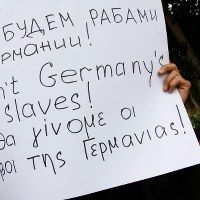 БУДЕМ РАБАМИ
РМАНИИ!
't Germany's
slaves!
θα γίνομε οι
βοι της Γερμανίας!